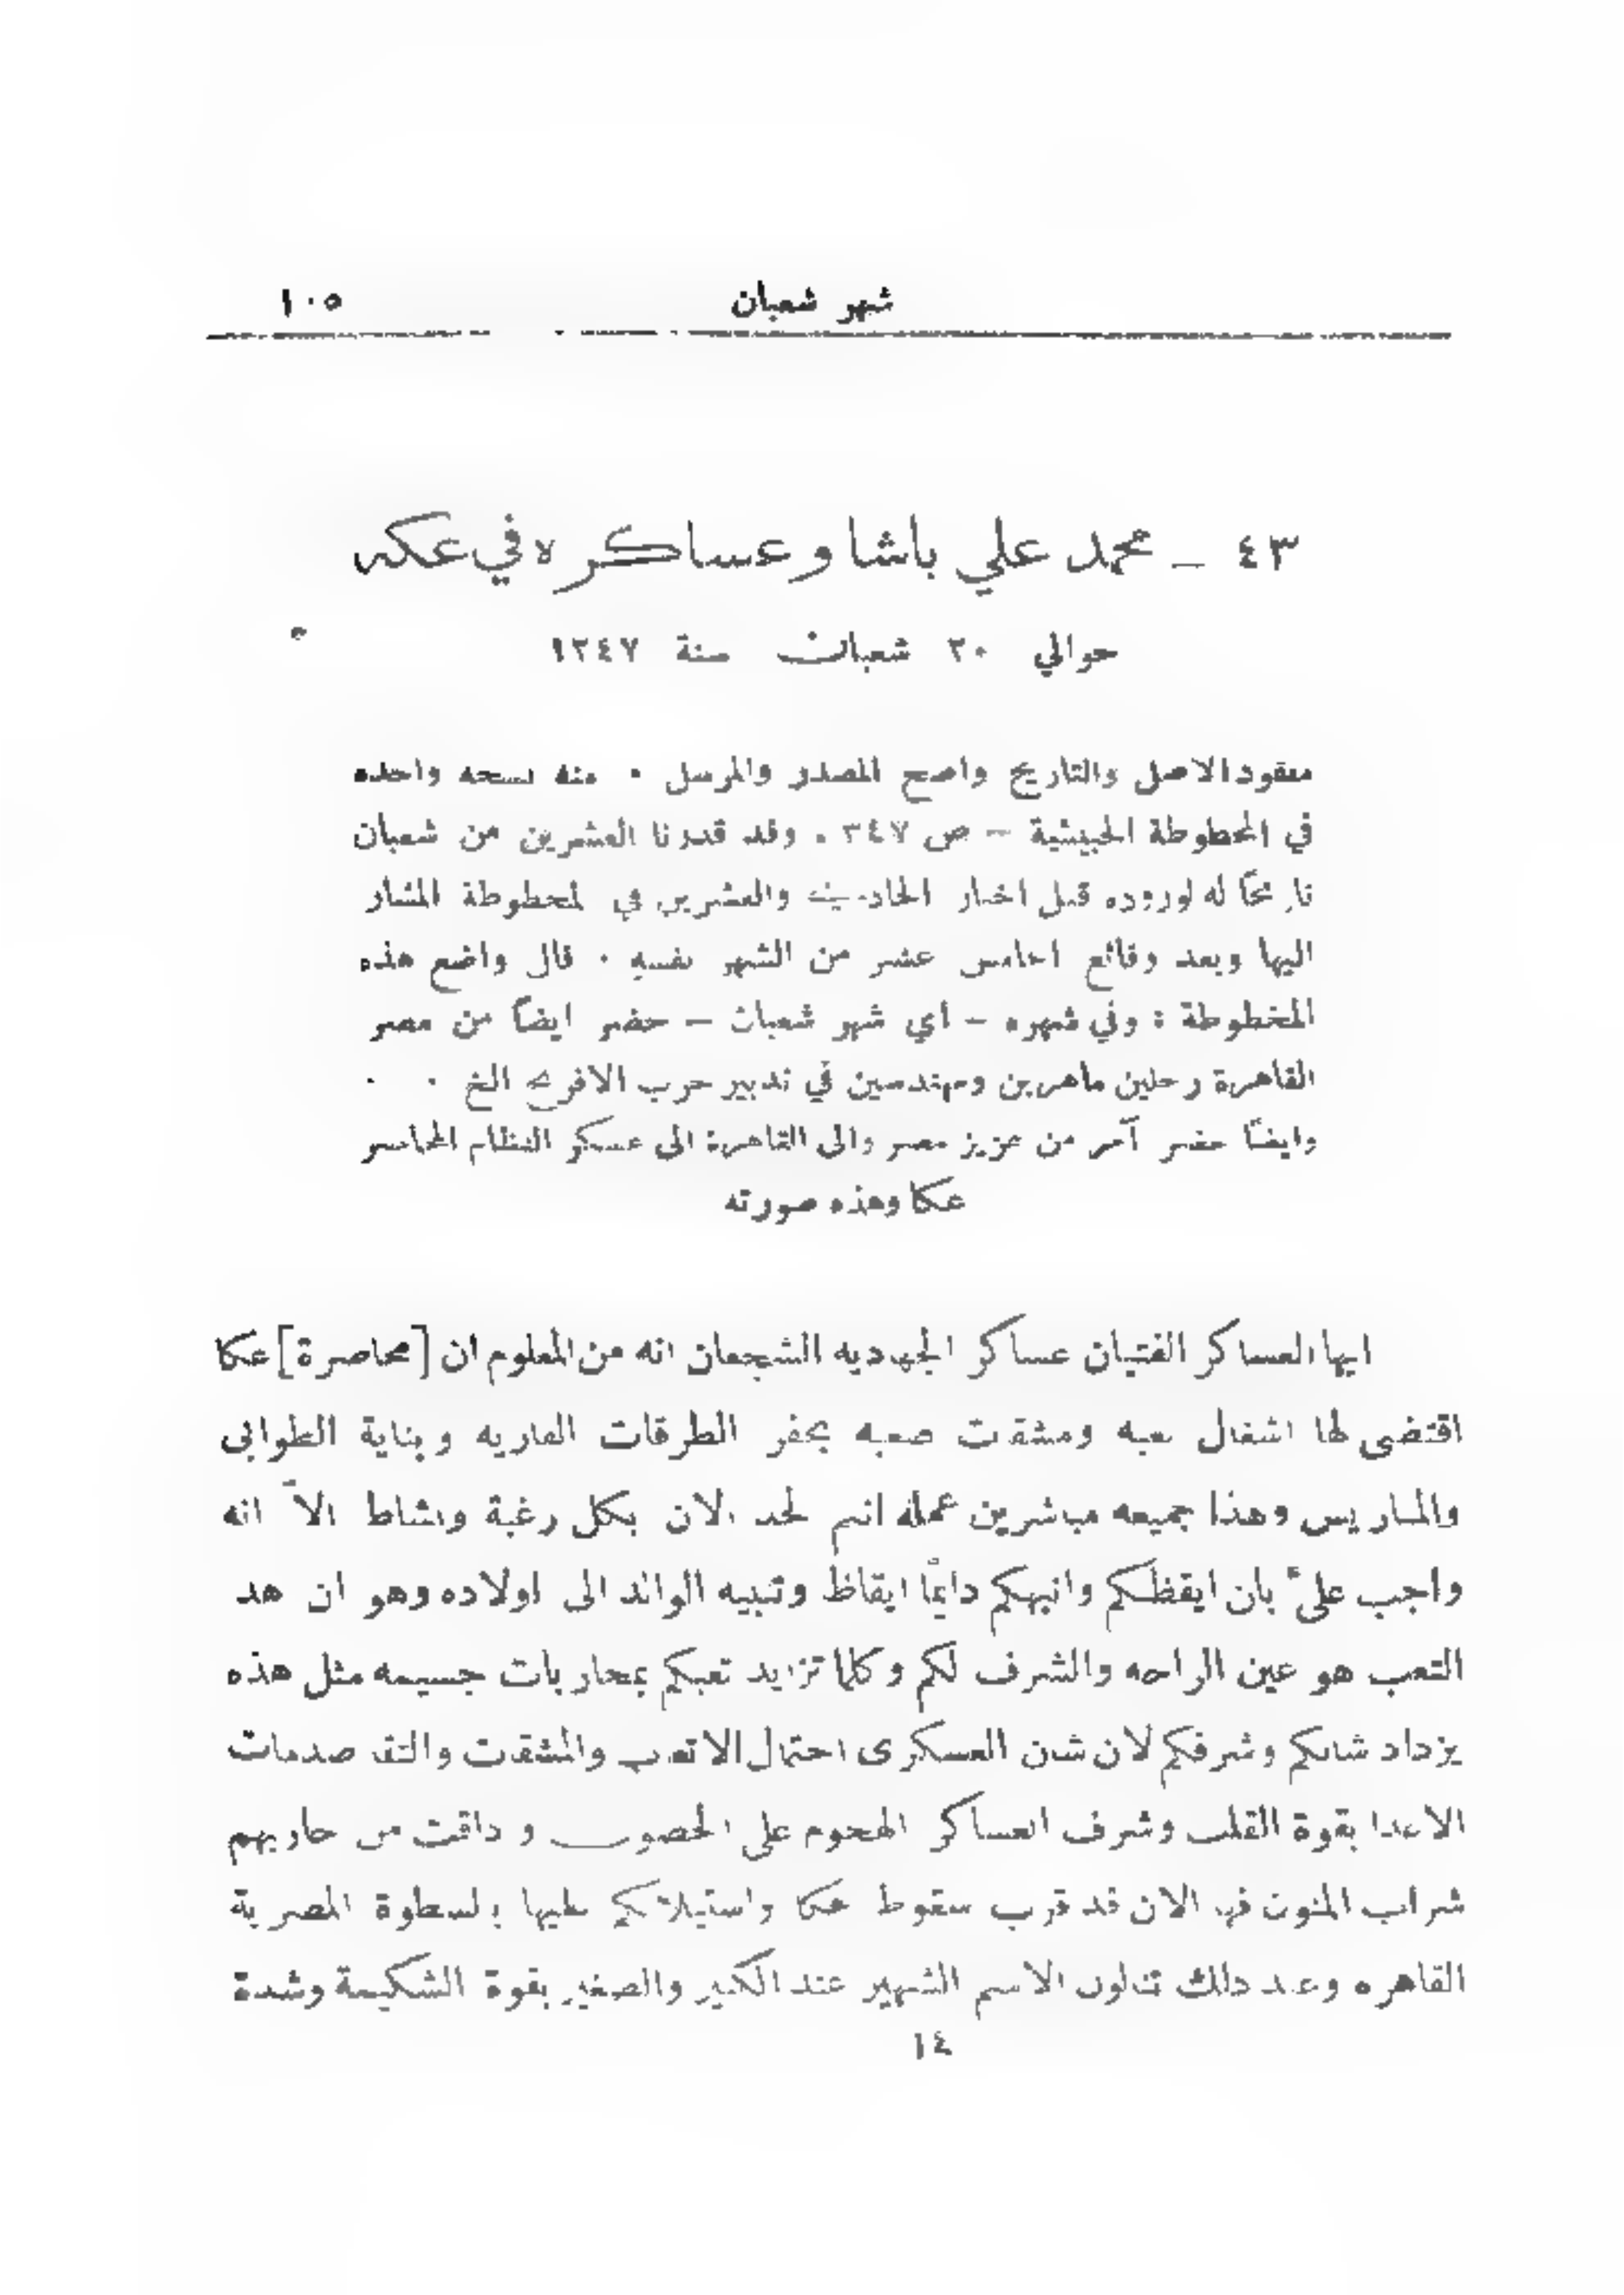 شهر شعبان ١٠٥
٤٣ — محمد علي باشا وعساكره في عكه
حوالي ٢٠ شعبان سنة ١٢٤٧
مفقود الاصل والتاريخ واضح المصدر والمرسل . منه نسخه واحده
في المخطوطة الحبيشية – ص ٣٤٧ . وقد قدرنا العشرين من شعبان
تاريخاً له لوروده قبل اخبار الحادي والعشرين في المخطوطة المشار
اليها وبعد وقائع الخامس عشر من الشهر نفسه . قال واضع هذه
المخطوطة : وفي شهره – اي شهر شعبان – حضر ايضاً من مصر
القاهرة رجلين ماهرين ومهندسين في تدبير حرب الافرنج الخ . .
وايضاً حضر آمر من عزيز مصر والى القاهرة الى عسكر النظام المحاصر
عكا وهذه صورته
ايها العساكر الفتيان عساكر الجهاديه الشجعان انه من المعلوم ان [محاصرة] عكا
اقتضى لها اشغال تعبه ومشقات صعبه بحفر الطرقات الغاريه وبناية الطوابى
والمتاريس وهذا جميعه مباشرين عمله انتم لحد الان بكل رغبة ونشاط الاّ انه
واجب علىّ بان ايقظكم وانبهكم دايماً ايقاظ وتنبيه الوالد الى اولاده وهو ان هذ
التعب هو عين الراحه والشرف لكم وكلما تزايد تعبكم بمحاربات جسيمه مثل هذه
يزداد شانكم وشرفكم لان شان العسكرى احتمال الاتعاب والمشقات والتقا صدمات
الاعدا بقوة القلب وشرف العساكر الهجوم على الحصون و داقت من حاربهم
شراب المنون فها الان قد قرب سقوط عكا واستيلائكم عليها بالسطوة المصرية
القاهره وعند ذلك تنالون الاسم الشهير عند الكبير والصغير بقوة الشكيمة وشدة
١٤